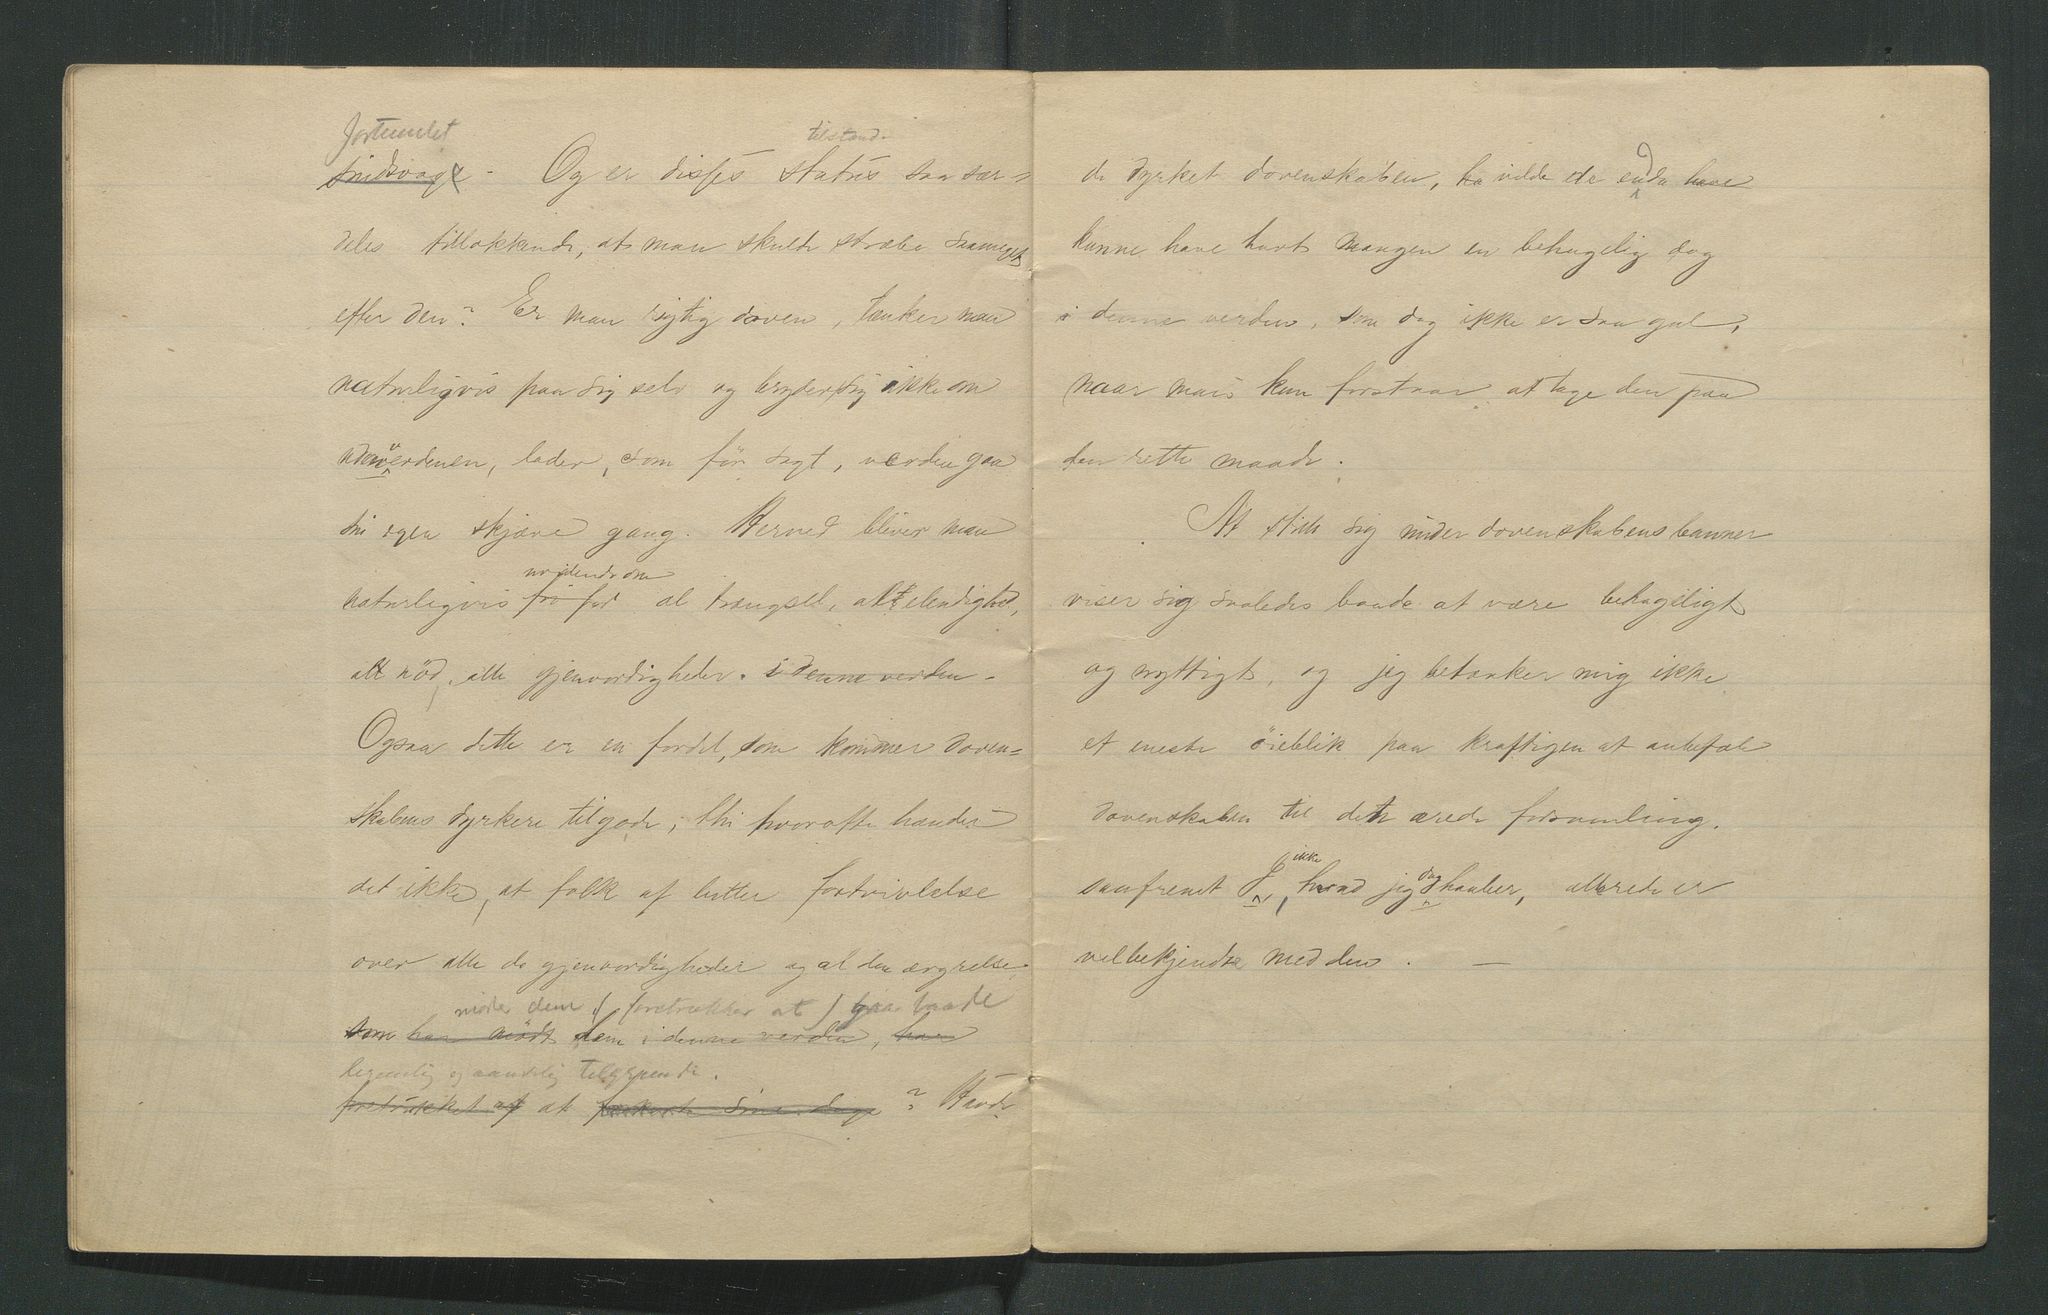 fortumlet
sindsvage - Og er disses status saa sær=
tilstand.
deles tillokkende, at man skulde stræbe saameget
efter den? Er man rigtig doven, tænker man
naturligvis paa sig selv og bryder sig ikke om
udenverdenen, lader, som før sagt, verden gaa
sin egen skjæve gang. Herved bliver man
uvidende om
naturligvis fri for al trængsel, al elendighed,
al nöd, alle gjenvordigheder. i denne verden -
Ogsaa dette er en fordel, som kommer doven=
skabens dyrkere tilgode; thi hvorofte hænder
det ikke, at folk af bitter fortvivlelse
over alle de gjenvordigheder og al den ærgrelse
møder dem ( foretrækker at ) gaa baade
som har mödt dem i denne verden, har
legemlig og aandelig tilgrunde.
foretrukket af at forkorte sine dage? Havde
de dyrket dovenskaben, ha vilde de enda have
kunne have havt mangen en behagelig dag
i denne verden, som dog ikke er saa gal,
naar man kun forstaar at tage den paa
den rette maade.
At stille sig under dovenskabens banner
viser sig saaledes baade at være behageligt
og nyttigt, og jeg betænker mig ikke
et eneste öieblik paa kraftigen at anbefale
dovenskaben til den ærede forsamling.
saafremt I ikke, hvad jeg dog haaber, allerede er
velbekjendte med den. -